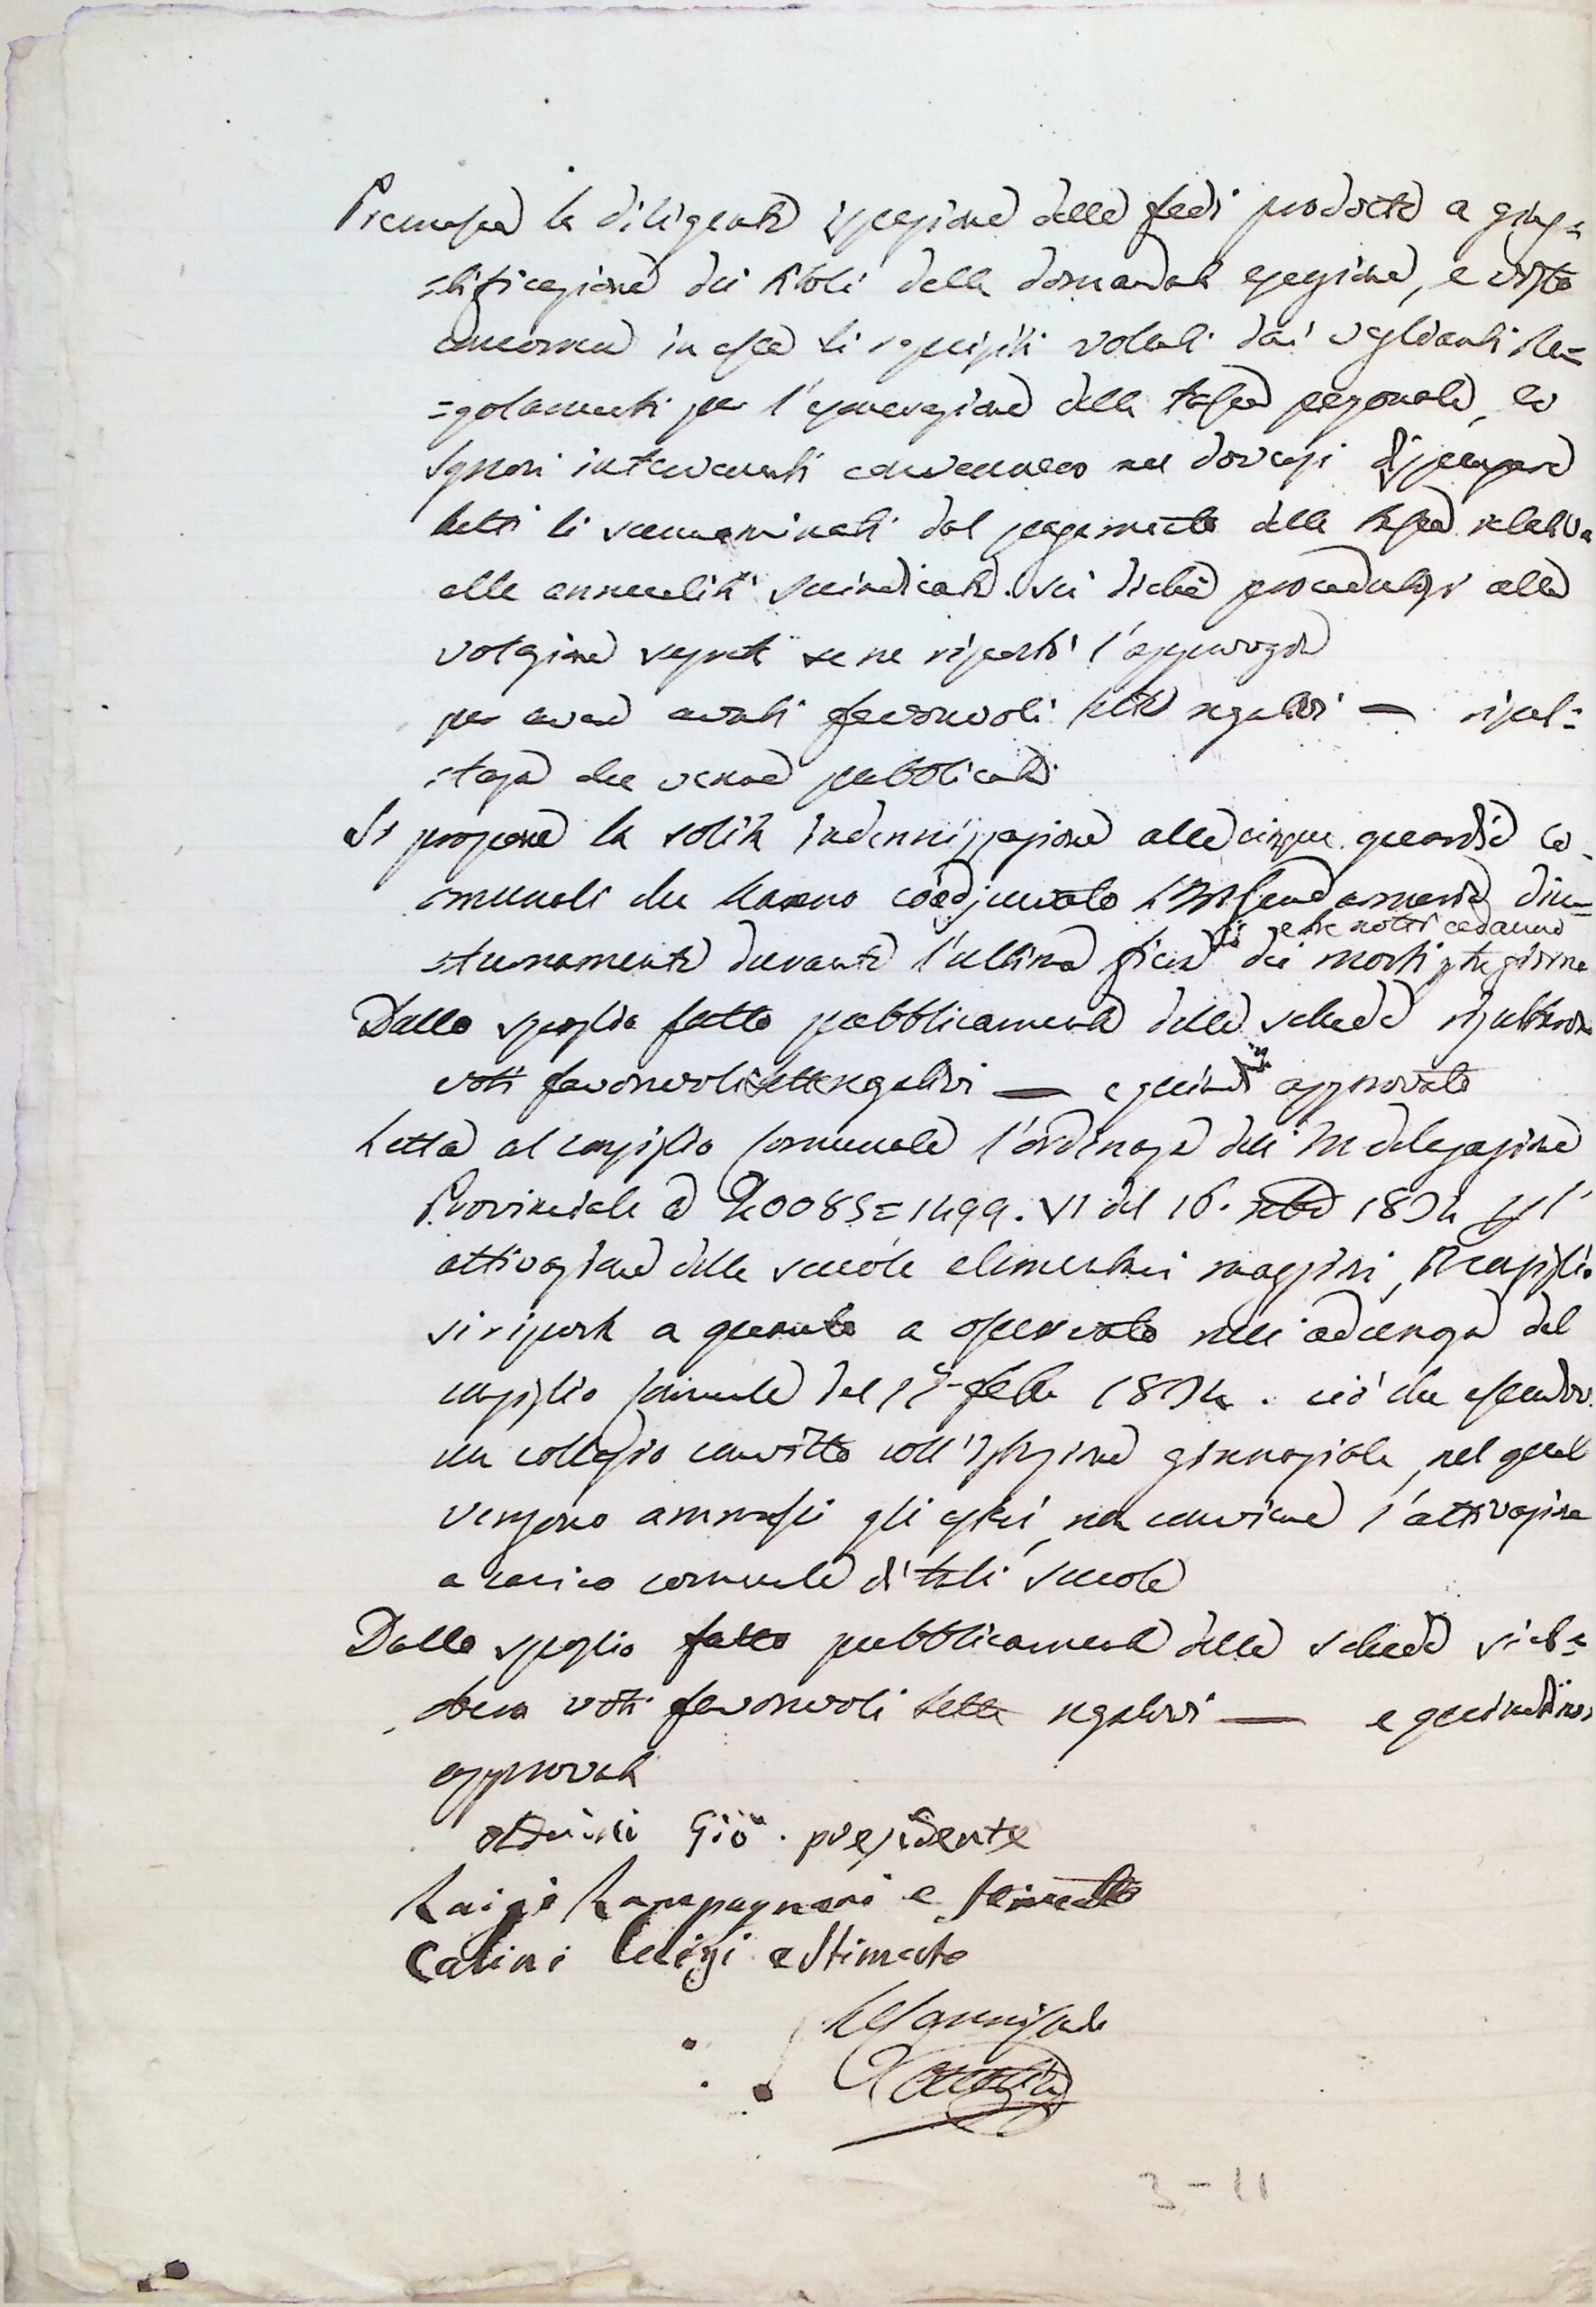 Premessa la diligente ispezione delle fedi prodotte a giu=
=stificazione dei titoli della domandata esenzione, e visto
concorrere in essa li requisiti voluti dai veglianti Re=
=golamenti per l'esenerazione della tassa personale, li
Signori intervenuti convennero nel doversi dispensare
tutti li sunnominati dal pagamento della tassa relativa
alle annualità suindicate. Su di che procedutosi alla
votazione segreta se ne riportò l'approvazione
per avere avuti favorevoli sette negativi — risul=
=tanza che venne pubblicata
Si propone la solita indennizzazione alle cinque guardie co
=munali che hanno coadjuvato Gendarmeria diu=
e tre notti cadauno
=turnamente durante l'ultima fiera dei morti p tre giorni
Dallo spoglio fatto pubblicamente delle schede risultarono
voti favorevoli sette negativi — e quindi approvato
Letta al consiglio comunale l'ordinanza dell' Delegazione
Provinciale 20085=1499. VI del 16. 1854 p l'
attivazione delle scuole elementari maggiori, il consiglio
si riporta a quanto a osservato nell'adunanza del
consiglio comunale del 1854. ciò che essendovi
un collegio convitto coll'istruzione ginnasiale, nel quale
vengono ammessi gli esterni, non conviene l'attivazione
a carico comunale di tali scuole
Dallo spoglio fatto pubblicamente delle schede si eb=
=bero voti favorevoli sette negativi — e quindi
approvata
Gio. presidente
Luigi Lampugnani e stimato
Catini Luigi estimato
3-11